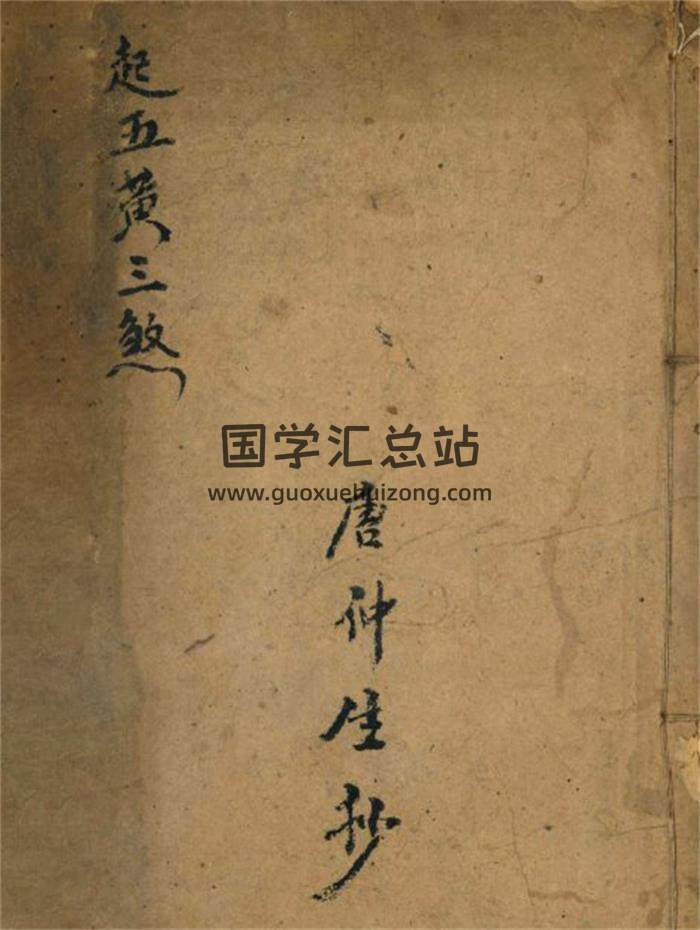 起五黄三煞
国学汇总站
www.guoxuehuizong.com
唐仲生抄